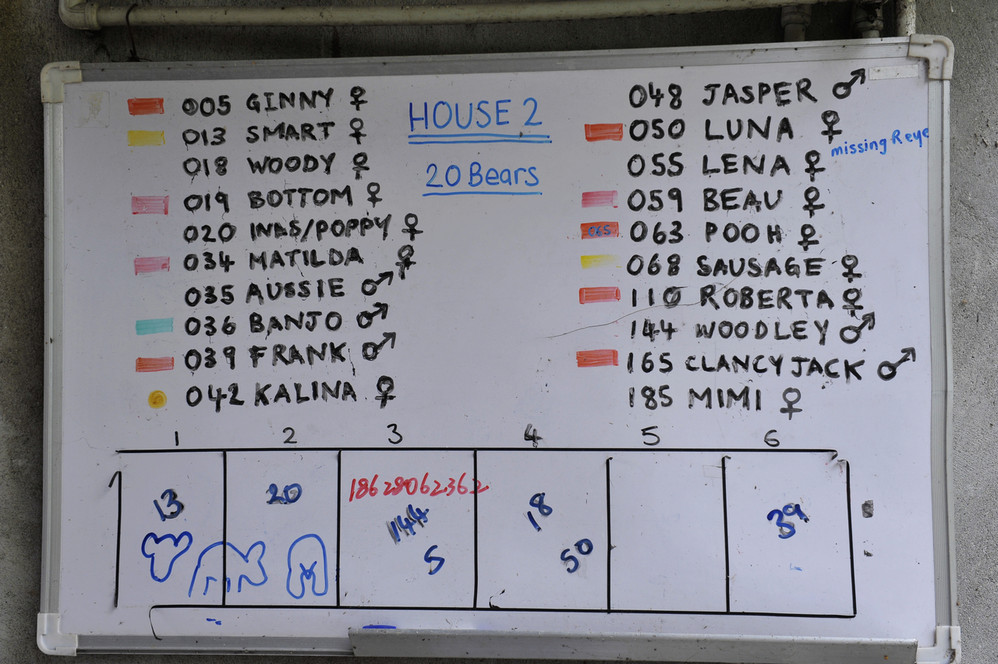 HOUSE 2
20 Bears
005 GINNY ♀
013 SMART ♀
018 WOODY ♀
019 BOTTOM ♀
020 INAS/POPPY ♀
034 MATILDA ♀
035 AUSSIE ♂
036 BANJO ♂
039 FRANK ♂
042 KALINA ♀
048 JASPER ♂
050 LUNA ♀
missing R eye
055 LENA ♀
059 BEAU ♀
065 063 POOH ♀
068 SAUSAGE ♀
110 ROBERTA ♀
144 WOODLEY ♂
165 CLANCY JACK ♂
185 MIMI ♀
1 2 3 4 5 6
13 20 18628062362 18 39
144
5 50